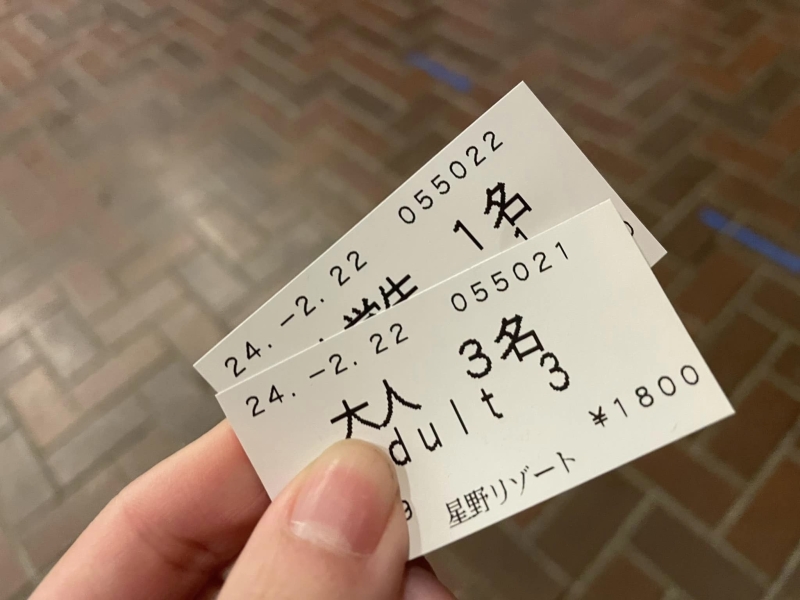 24.-2.22 055022
学生 1名
1
24.-2.22 055021
大人 3名
dult 3
¥1800
9 星野リゾート